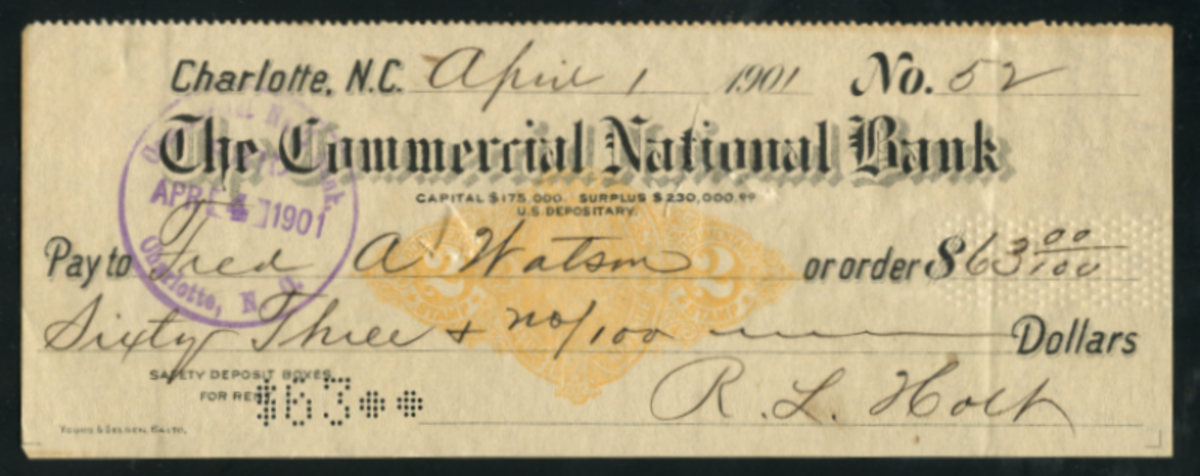 Charlotte, N.C. April 1 1901 No. 52
The Commercial National Bank
CAPITAL $175,000. SURPLUS $230,000.00
U.S. DEPOSITARY.
APR 4 1901
Charlotte, N. C.
Pay to Fred A. Watson or order $63 00/100
2 2
STAMP STAMP
Sixty Three & no/100 Dollars
SAFETY DEPOSIT BOXES
FOR RENT
$63**
R. L. Holt
YOUNG & SELDEN, BALTO.